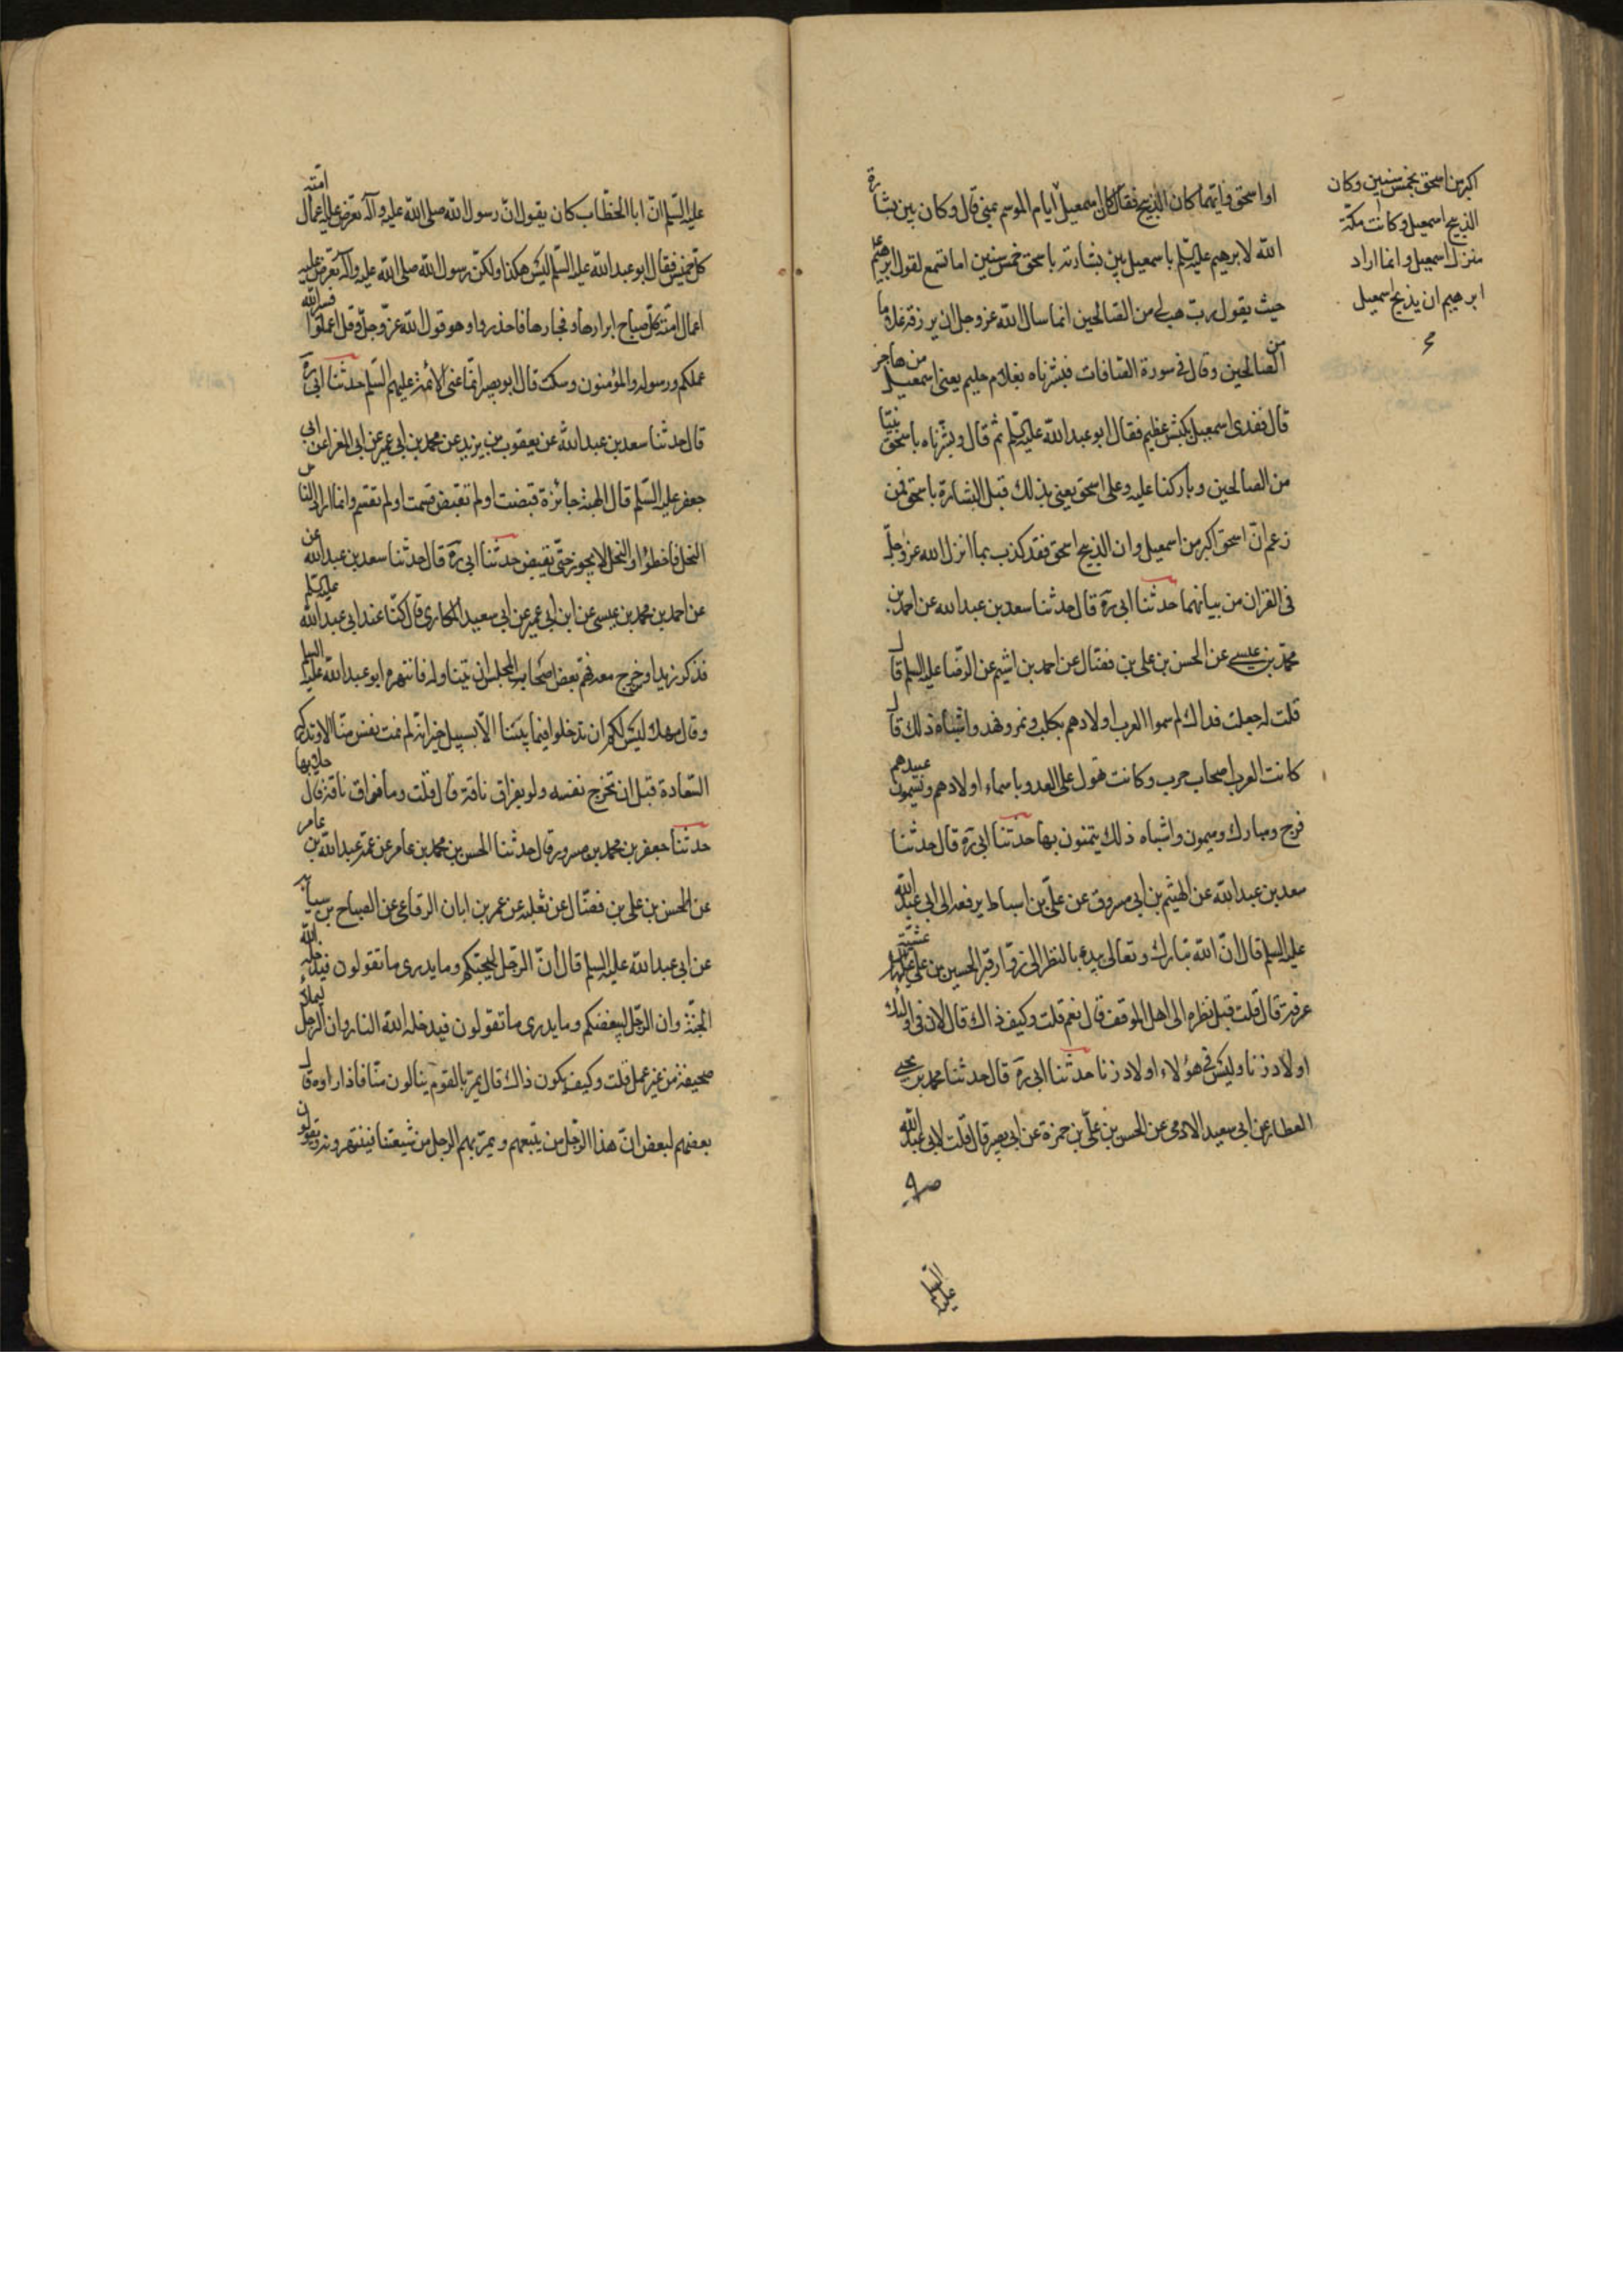 او اسحق فايهما كان الذبيح فقال كان اسمعيل ايام الموسم بمنى قال وكان بين بشارة
الله لابرهيم عليه السلم باسمعيل بين بشارته باسحق خمس سنين اما تسمع لقول ابرهيم ع
حيث يقول رب هب لى من الصالحين انما سال الله عز وجل ان يرزقه غلاما
من الصالحين وقال فى سورة الصافات فبشرناه بغلام حليم يعنى اسمعيل من هاجر
قال ففدى اسمعيل بكبش عظيم فقال ابو عبد الله عليه السلم ثم قال وبشرناه باسحق نبيا
من الصالحين وباركنا عليه وعلى اسحق يعنى بذلك قبل البشارة باسحق فمن
زعم ان اسحق اكبر من اسمعيل وان الذبيح اسحق فقد كذب بما انزل الله عز وجل
فى القران من بيانهما حدثنا ابى ره قال حدثنا سعد بن عبد الله عن احمد بن
محمد بن عيسى عن الحسن بن على بن فضال عن احمد بن اشيم عن الرضا عليه السلم قال
قلت له جعلت فداك لم سموا العرب اولادهم بكلب ونمر وفهد واشباه ذلك قال
كانت العرب اصحاب حرب وكانت تهول على العدو باسماء اولادهم ويسمون عبيدهم
فرج ومبارك وميمون واشباه ذلك يتمنون بها حدثنا ابى ره قال حدثنا
سعد بن عبد الله عن الهيثم بن ابى مسروق عن على بن اسباط يرفعه الى ابى عبد الله
عليه السلم قال ان الله تبارك وتعالى يبدء بالنظر الى زوار قبر الحسين بن على عليهما السلم عشية
عرفة قال قلت قبل نظره الى اهل الموقف قال نعم قلت وكيف ذاك قال لان فى اولئك
اولاد زنا وليس فى هؤلاء اولاد زنا حدثنا ابى ره قال حدثنا محمد بن يحيى
العطار عن ابى سعيد الادمى عن الحسن بن على بن حمزة عن ابى بصير قال قلت لابى عبد الله
عليه السلم
اكبر من اسحق بخمس سنين وكان
الذبيح اسمعيل وكانت مكة
منزل اسمعيل وانما اراد
ابرهيم ان يذبح اسمعيل
عليه السلم ان ابا الخطاب كان يقول ان رسول الله صلى الله عليه وآله تعرض عليه اعمال امته
كل خميس فقال ابو عبد الله عليه السلم ليس هكذا ولكن رسول الله صلى الله عليه وآله تعرض عليه
اعمال امته كل صباح ابرارها وفجارها فاحذروا وهو قول الله عز وجل وقل اعملوا فسيرى الله
عملكم ورسوله والمؤمنون وسكت قال ابو بصير انما عنى الائمة عليهم السلم حدثنا ابى ره
قال حدثنا سعد بن عبد الله عن يعقوب بن يزيد عن محمد بن ابى عمير عن ابى المغرا عن ابى
جعفر عليه السلم قال الهبة جائزة قبضت او لم تقبض قسمت او لم تقسم وانما اراد الناس
النحل فاخطؤا والنحل لا يجوز حتى تقبض حدثنا ابى ره قال حدثنا سعد بن عبد الله عن
عن احمد بن محمد بن عيسى عن ابن ابى عمير عن ابى سعيد المكارى قال كنا عند ابى عبد الله عليه السلم
فذكر زيد او من خرج معه فهم بعض اصحاب المجلس ان يتناوله فانتهره ابو عبد الله عليه السلم
وقال مهلا ليس لكم ان تدخلوا فيما بيننا الا بسبيل خير انه لم تمت نفس منا الا وتدركه
السعادة قبل ان تخرج نفسه ولو بفواق ناقة قال قلت وما فواق ناقة قال حلابها
حدثنا جعفر بن محمد بن مسرور قال حدثنا الحسن بن محمد بن عامر عن عمه عبد الله بن عامر
عن الحسن بن على بن فضال عن ثعلبة عن عمر بن ابان الرفاعى عن الصباح بن سيابة
عن ابى عبد الله عليه السلم قال ان الرجل ليحبكم وما يدرى ما تقولون فيدخله الله
الجنة وان الرجل ليبغضكم وما يدرى ما تقولون فيدخله الله النار وان الرجل ليملأ
صحيفة من غير عمل قلت وكيف يكون ذاك قال يمر بالقوم ينالون منا فاذا راوه قال
بعضهم لبعض ان هذا الرجل من شيعتهم ويمر بهم الرجل من شيعتنا فينتهرونه ويقولون